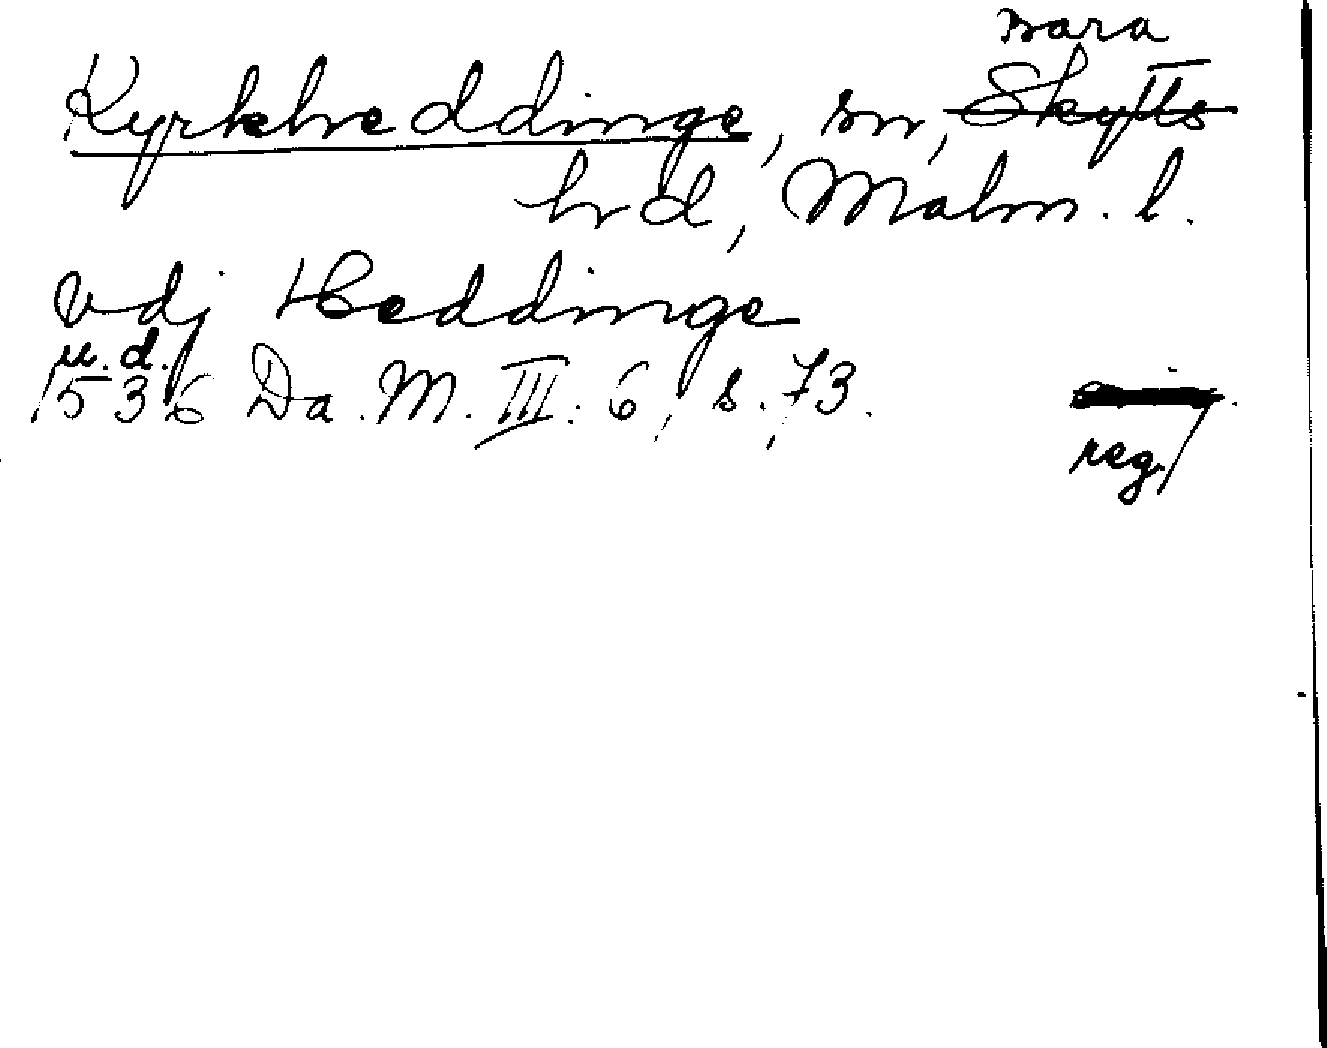 Bara
Kyrkheddinge, sn, Skytts
hrd, Malm. l.
Vdj Heddinge
u. d.
1536 Da. M. III. 6, s. 73.
reg.